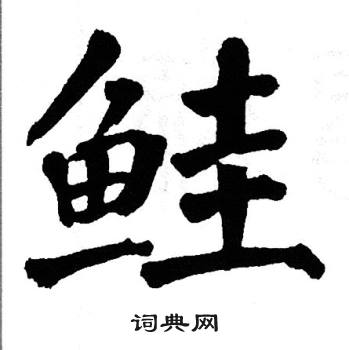 鲑
词典网